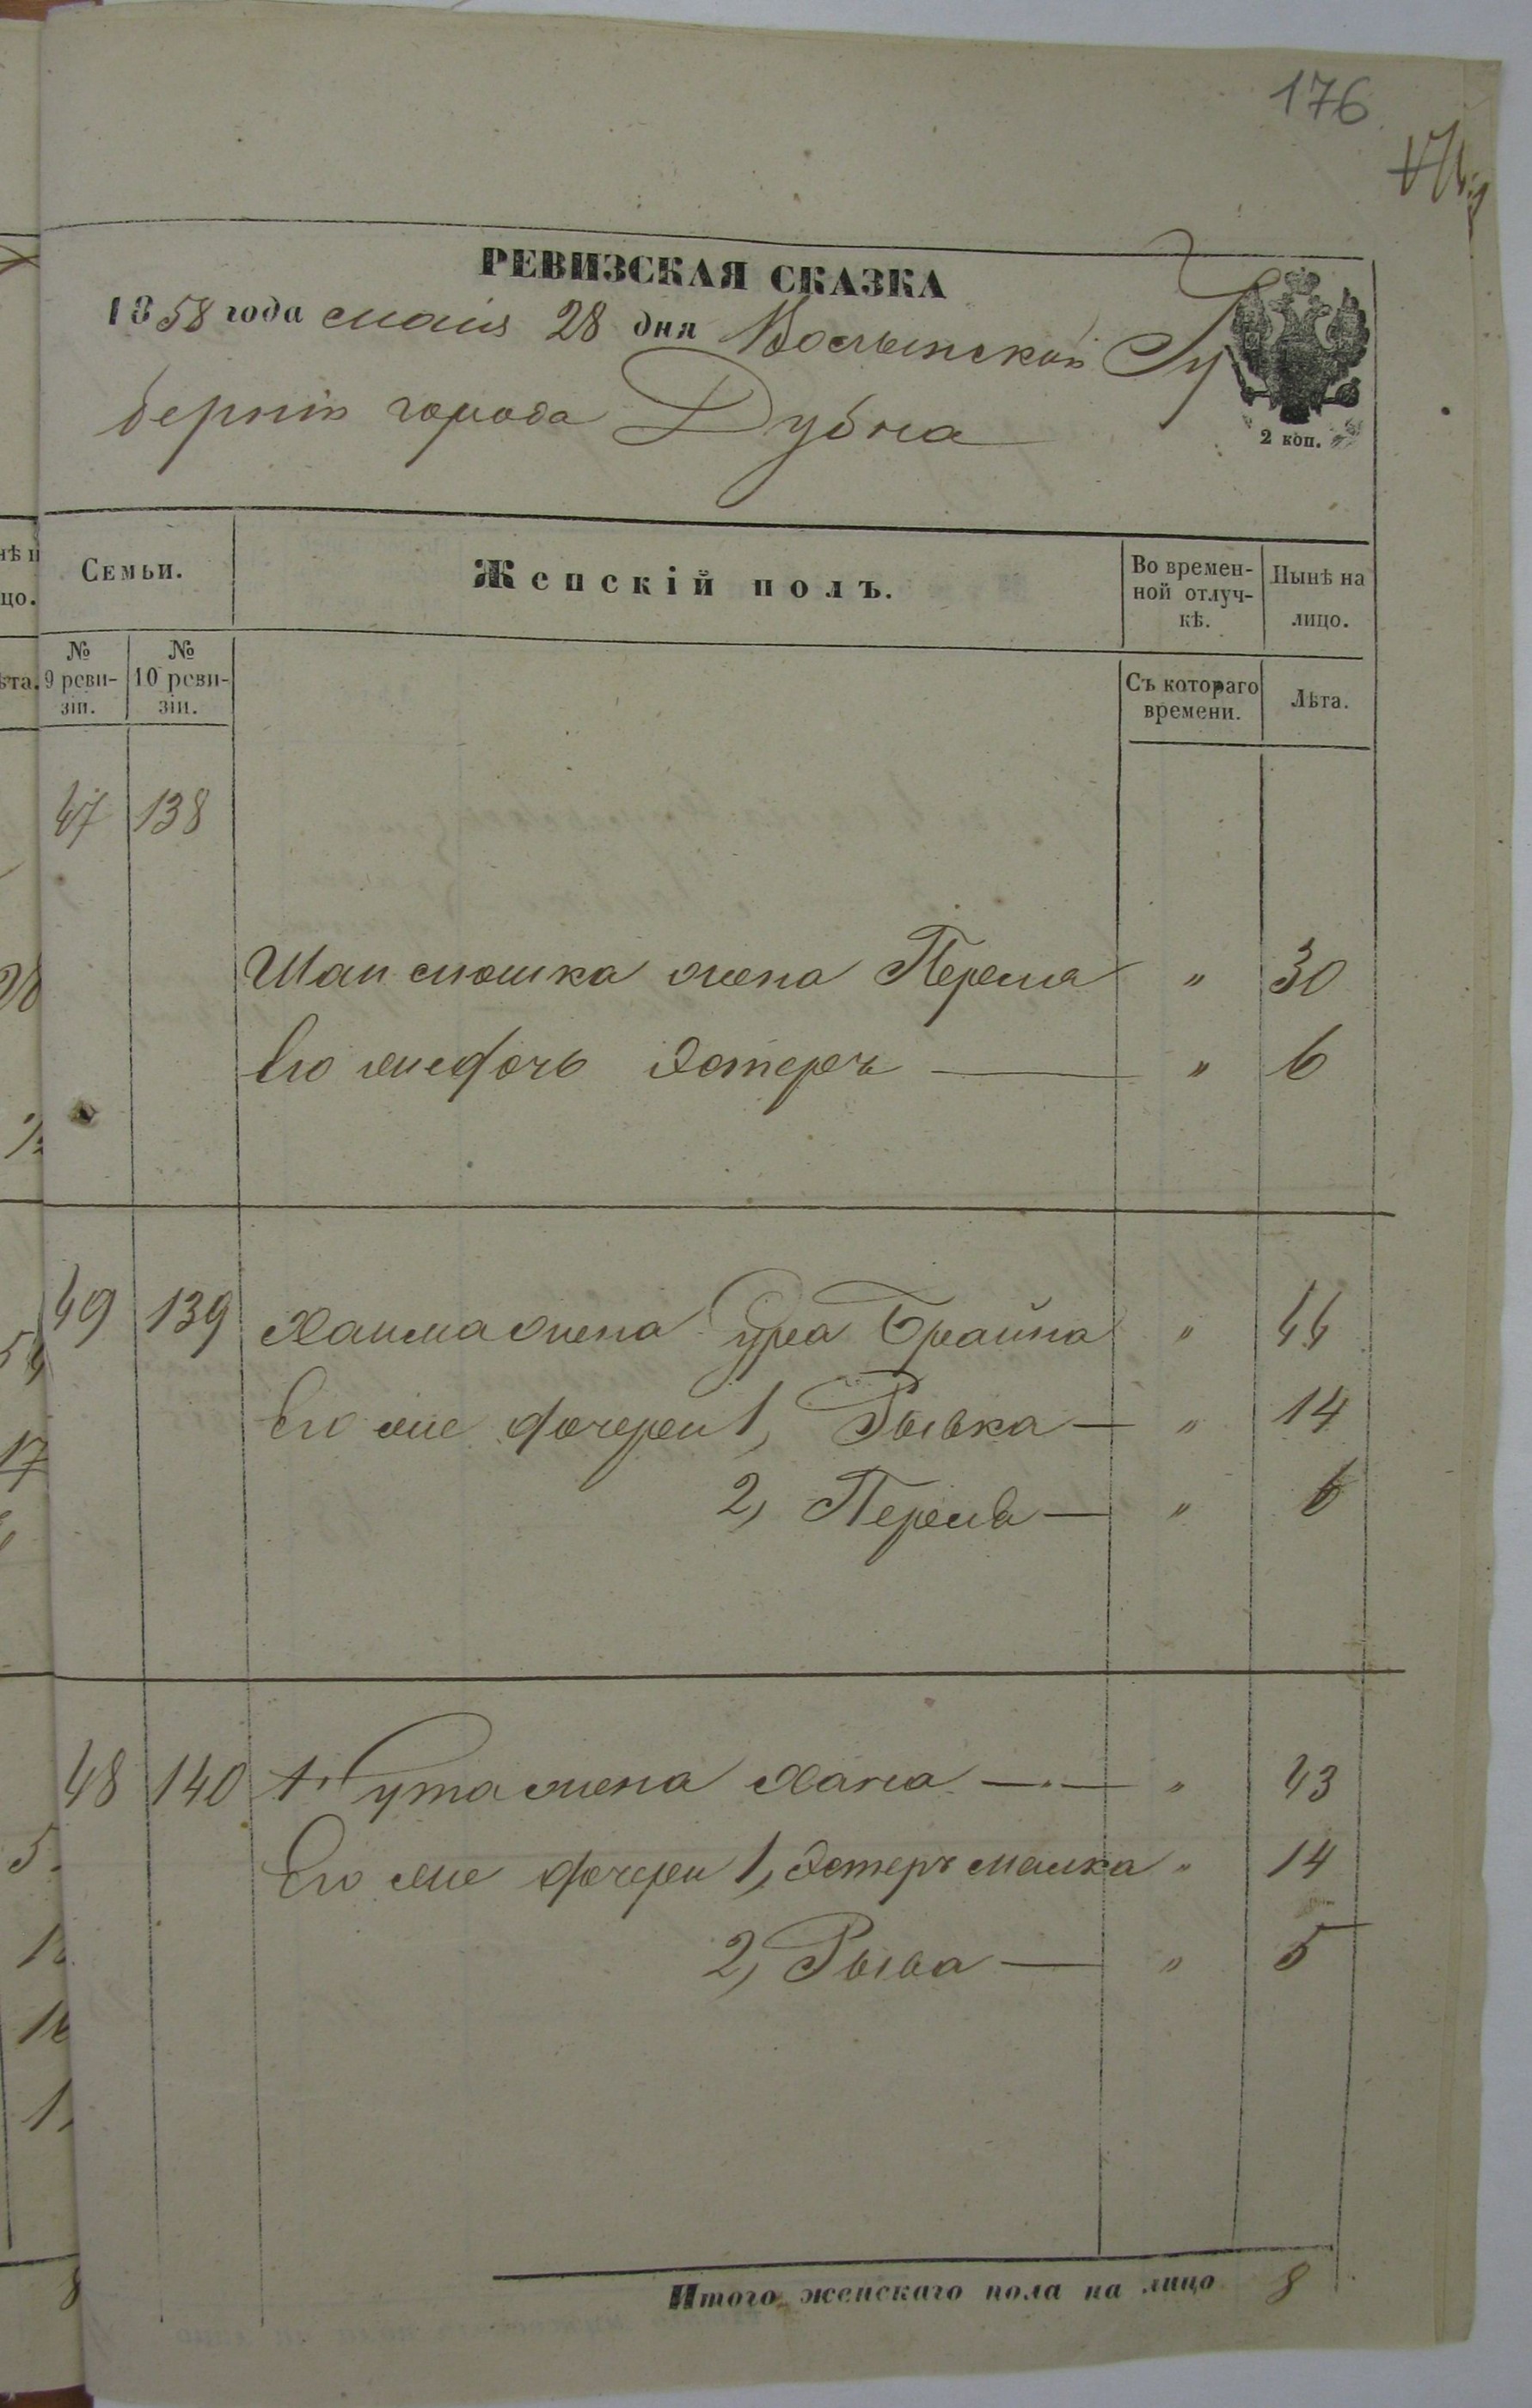 176
РЕВИЗСКАЯ СКАЗКА
1858 года маія 28 дня Волынской Гу
берніи города Дубна
2 коп.
Семьи.
Женскій полъ.
Во времен-
ной отлуч-
кѣ.
Нынѣ на
лицо.
№
9 реви-
зіи.
№
10 реви-
зіи.
Съ котораго
времени.
Лѣта.
47 138
жена Перля " 30
Его же дочь Эстеръ — " 6
49 139 Хаима жена Брайна " 44
Его же дочери 1, Рывка — " 14
2, Перля — " 6
48 140 жена Хана — " 43
Его же дочери 1, Эстеръ малка " 14
2, Рыва — " 5
Итого женскаго пола на лицо 8